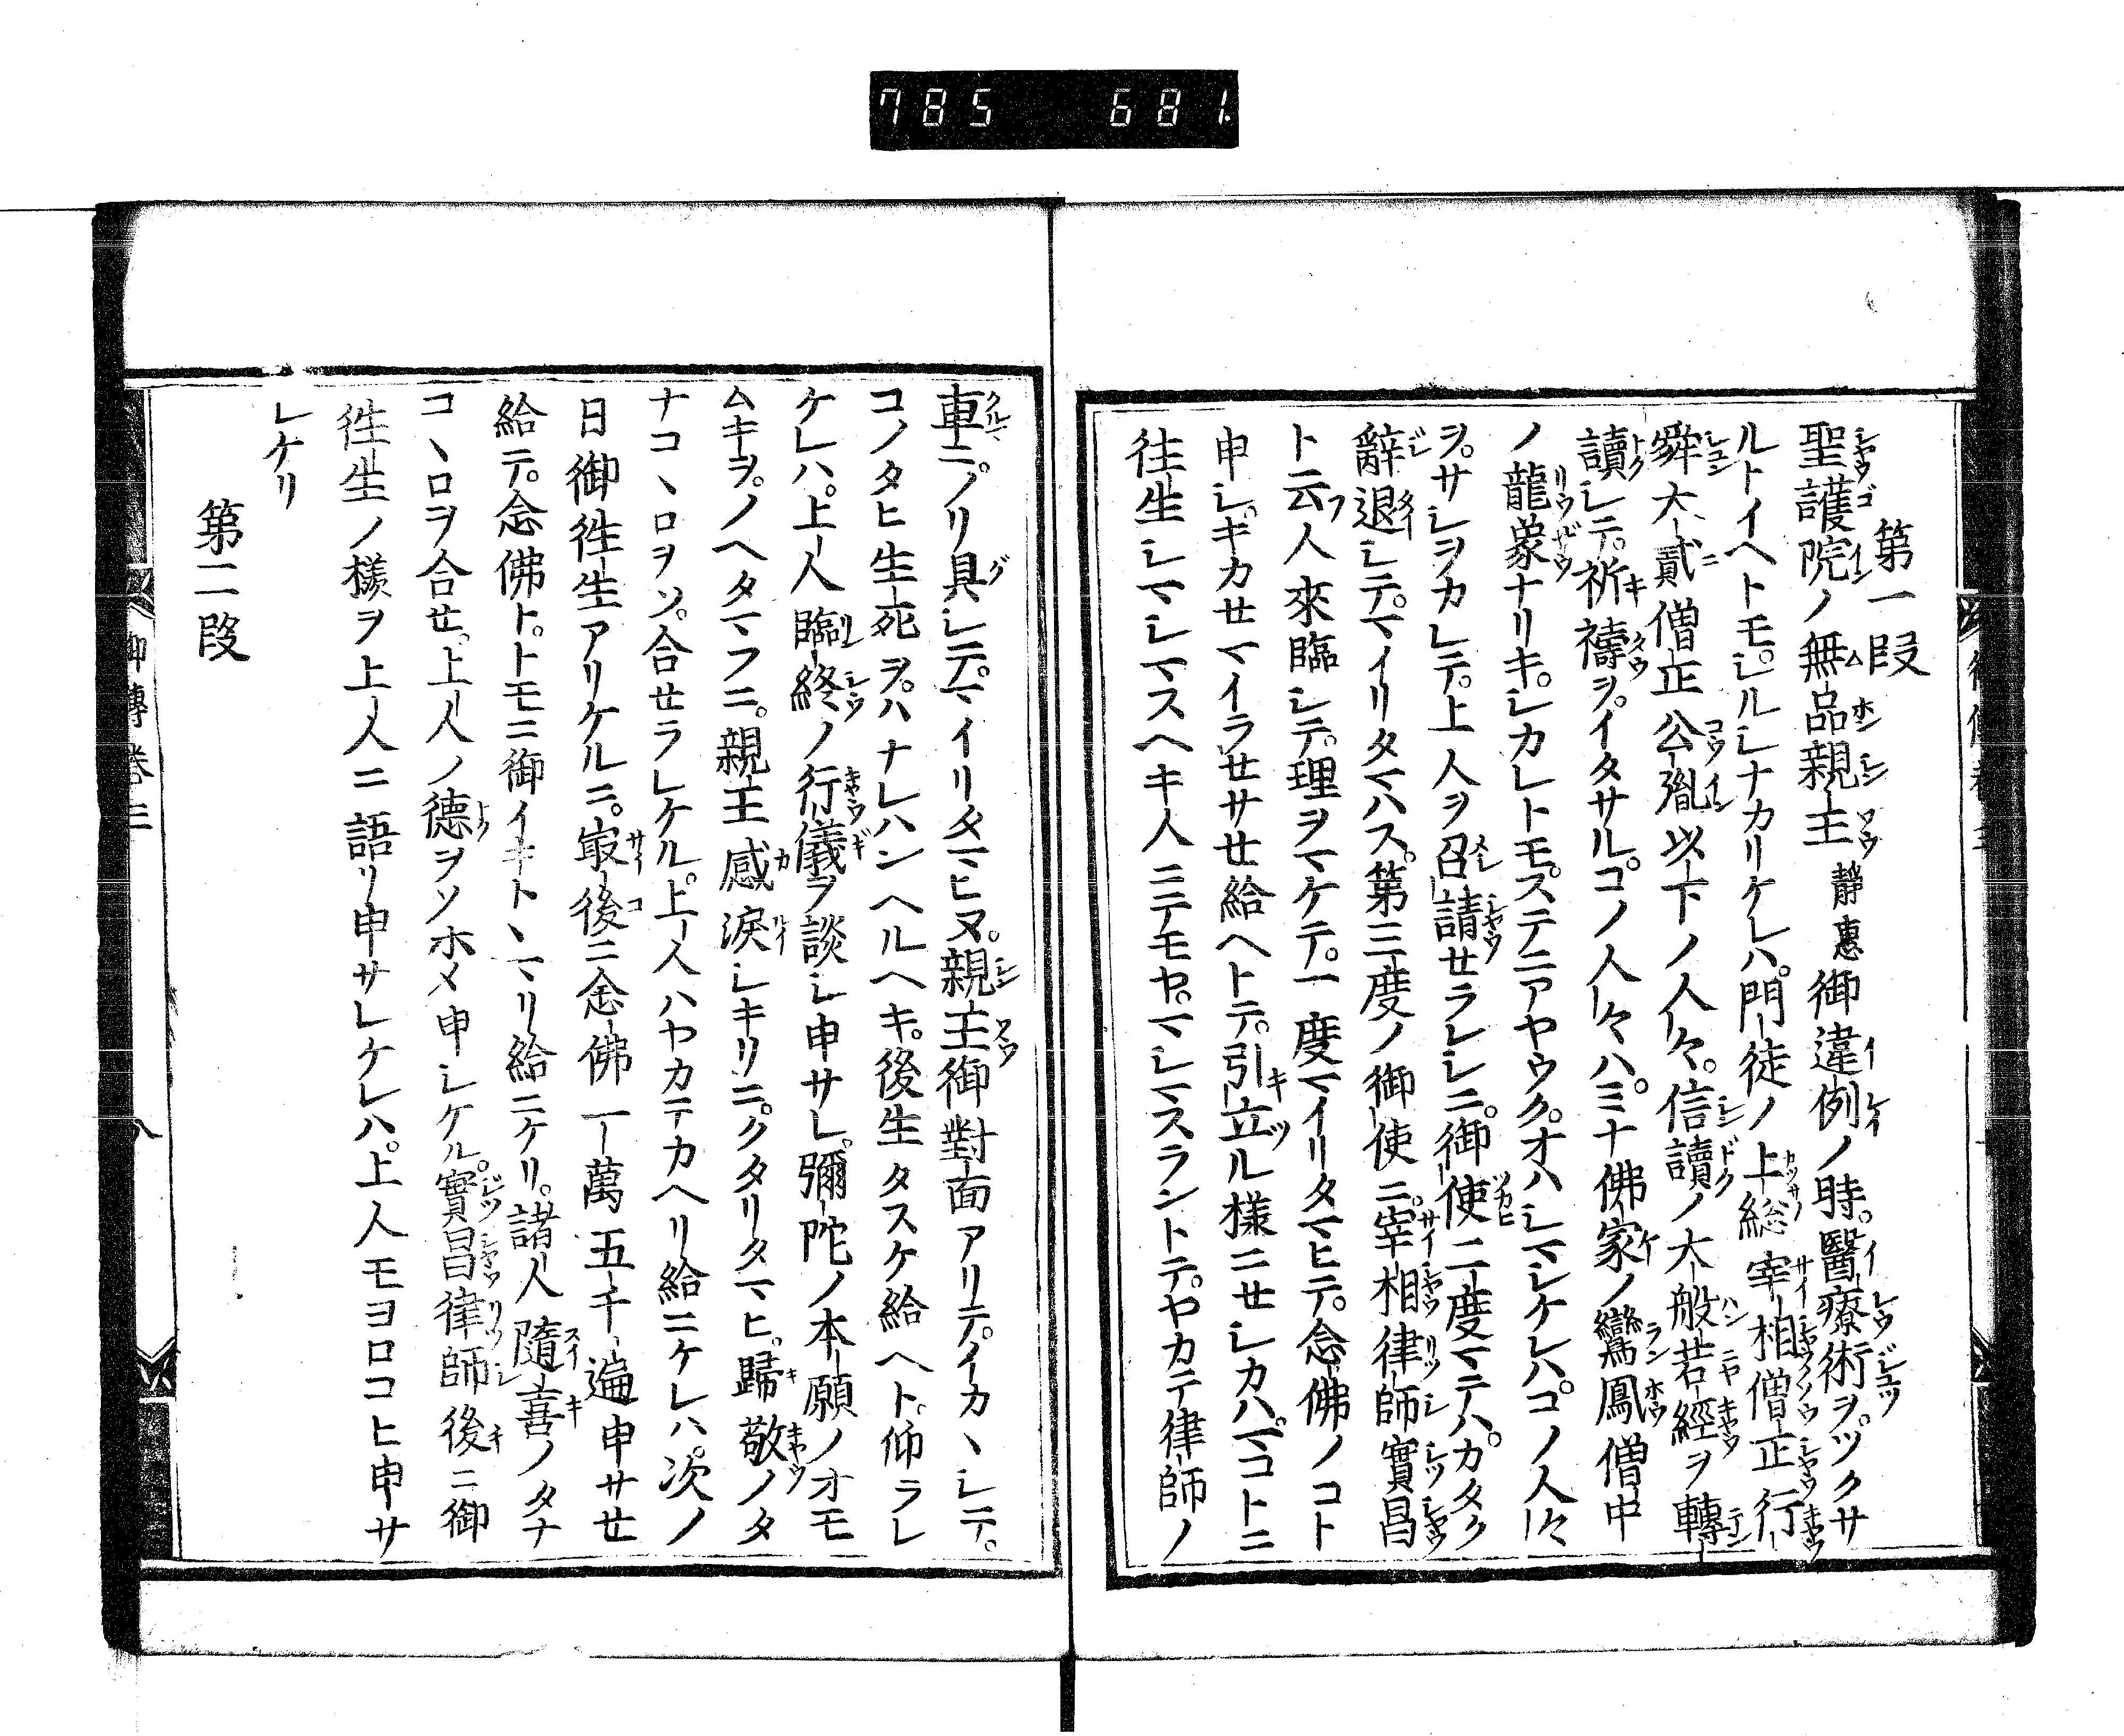 785 681
第一段
聖護院ノ無品親王靜惠御違例ノ時。醫療術ヲ。ツクサ
ルトイヘトモ。シルシナカリケレハ。門徒ノ上総宰相僧正行
舜大貳僧正公胤以下ノ人々。信讀ノ大般若經ヲ轉
讀シテ。祈禱ヲ。イタサル。コノ人々ハ。ミナ佛家ノ鸞鳳僧中
ノ龍象ナリキ。シカレトモ。ステニアヤウク。オハシマシケレハ。コノ人々
ヲ。サシヲカレテ。上人ヲ召請セラレシニ。御使二度マテハ。カタク
辭退シテ。マイリタマハス。第三度ノ御使ニ。宰相律師實昌
ト云人來臨シテ。理ヲマケテ。一度マイリタマヒテ。念佛ノコト
申シ。キカセマイラセサセ給ヘトテ。引立ル樣ニセシカハ。マコトニ
往生シマシマスヘキ人ニテモヤ。マシマスラントテ。ヤカテ律師ノ
車ニ。ノリ具シテ。マイリタマヒヌ。親王御對面アリテ。イカヽシテ。
コノタヒ生死ヲ。ハナレハンヘルヘキ。後生タスケ給ヘト。仰ラレ
ケレハ。上人臨終ノ行儀ヲ談シ申サレ。彌陀ノ本願ノオモ
ムキヲ。ノヘタマフニ。親王感淚シキリニ。クタリタマヒ。歸敬ノタ
ナコヽロヲソ。合セラレケル。上人ハヤカテカヘリ給ニケレハ。次ノ
日御徃生アリケルニ。㝡後ニ念佛一萬五千遍申サセ
給テ。念佛ト。トモニ御イキトヽマリ給ニケリ。諸人隨喜ノタナ
コヽロヲ合セ。上人ノ德ヲソホメ申シケル。實昌律師後ニ御
徃生ノ樣ヲ上人ニ語リ申サレケレハ。上人モヨロコヒ申サ
レケリ
第二段
御傳卷三
八